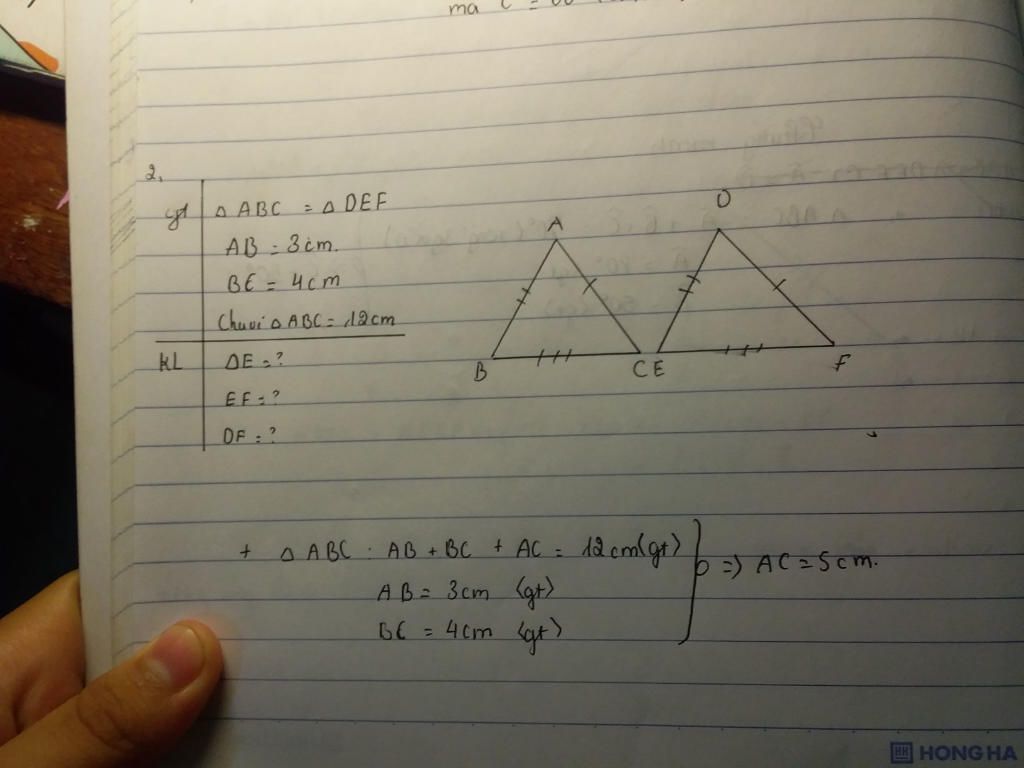 ma C =
2,
gt
△ABC = △DEF
AB = 3cm.
BC = 4cm
Chuvi △ABC = 12cm
KL
DE = ?
EF = ?
DF = ?
A
B
C
D
E
F
+ △ABC : AB + BC + AC = 12cm (gt)
AB = 3cm (gt)
BC = 4cm (gt)
=> AC = 5cm.
HH HONG HA